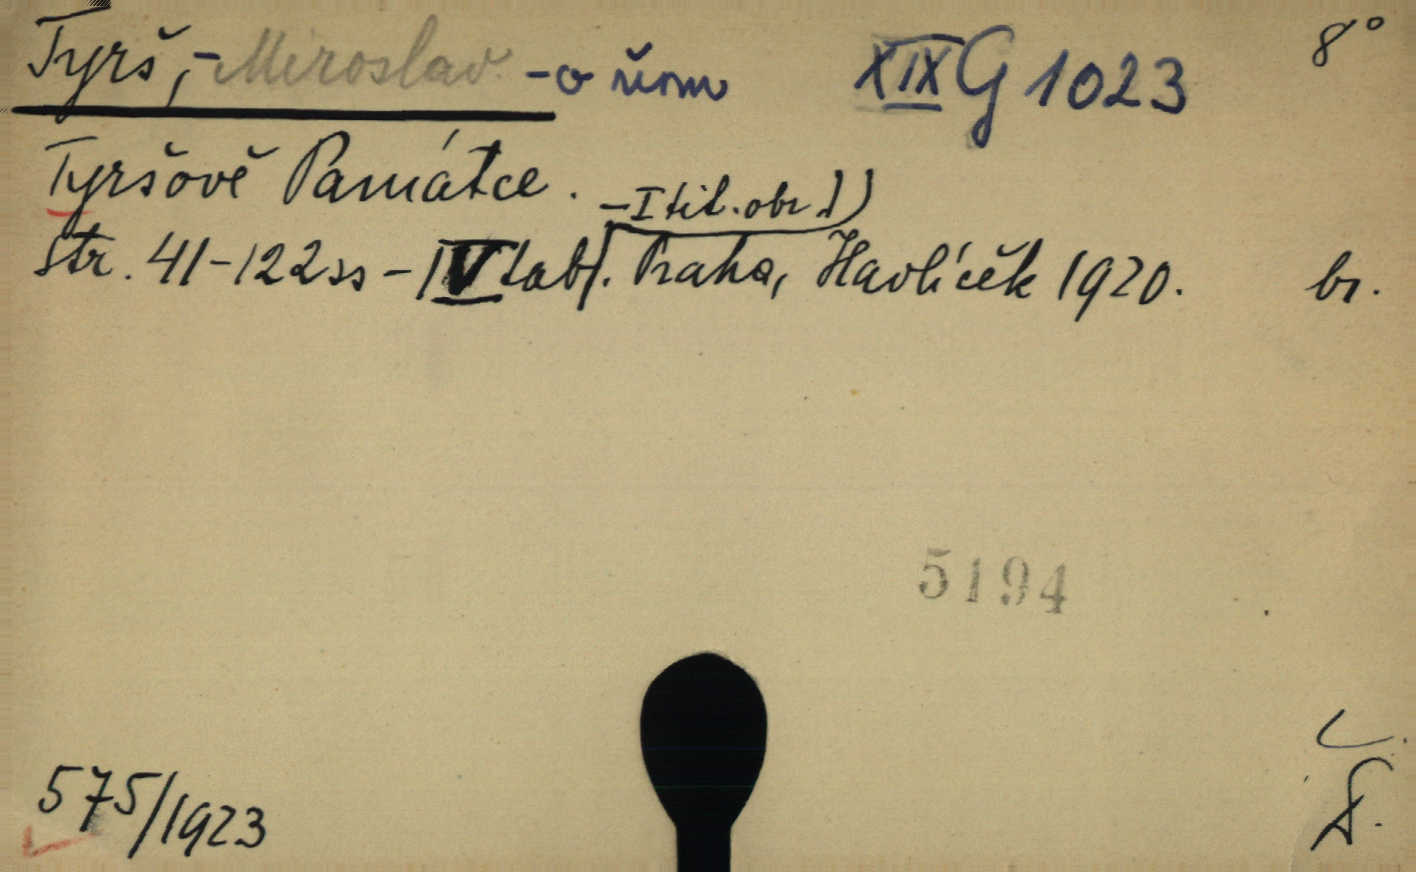 Tyrš, - Miroslav - o něm XIX G 1023 8°
Tyršově Památce.
- I tit. obr.)
Str. 41-122ss - IV tab. Praha, Havlíček 1920. br.
5194
575/1923